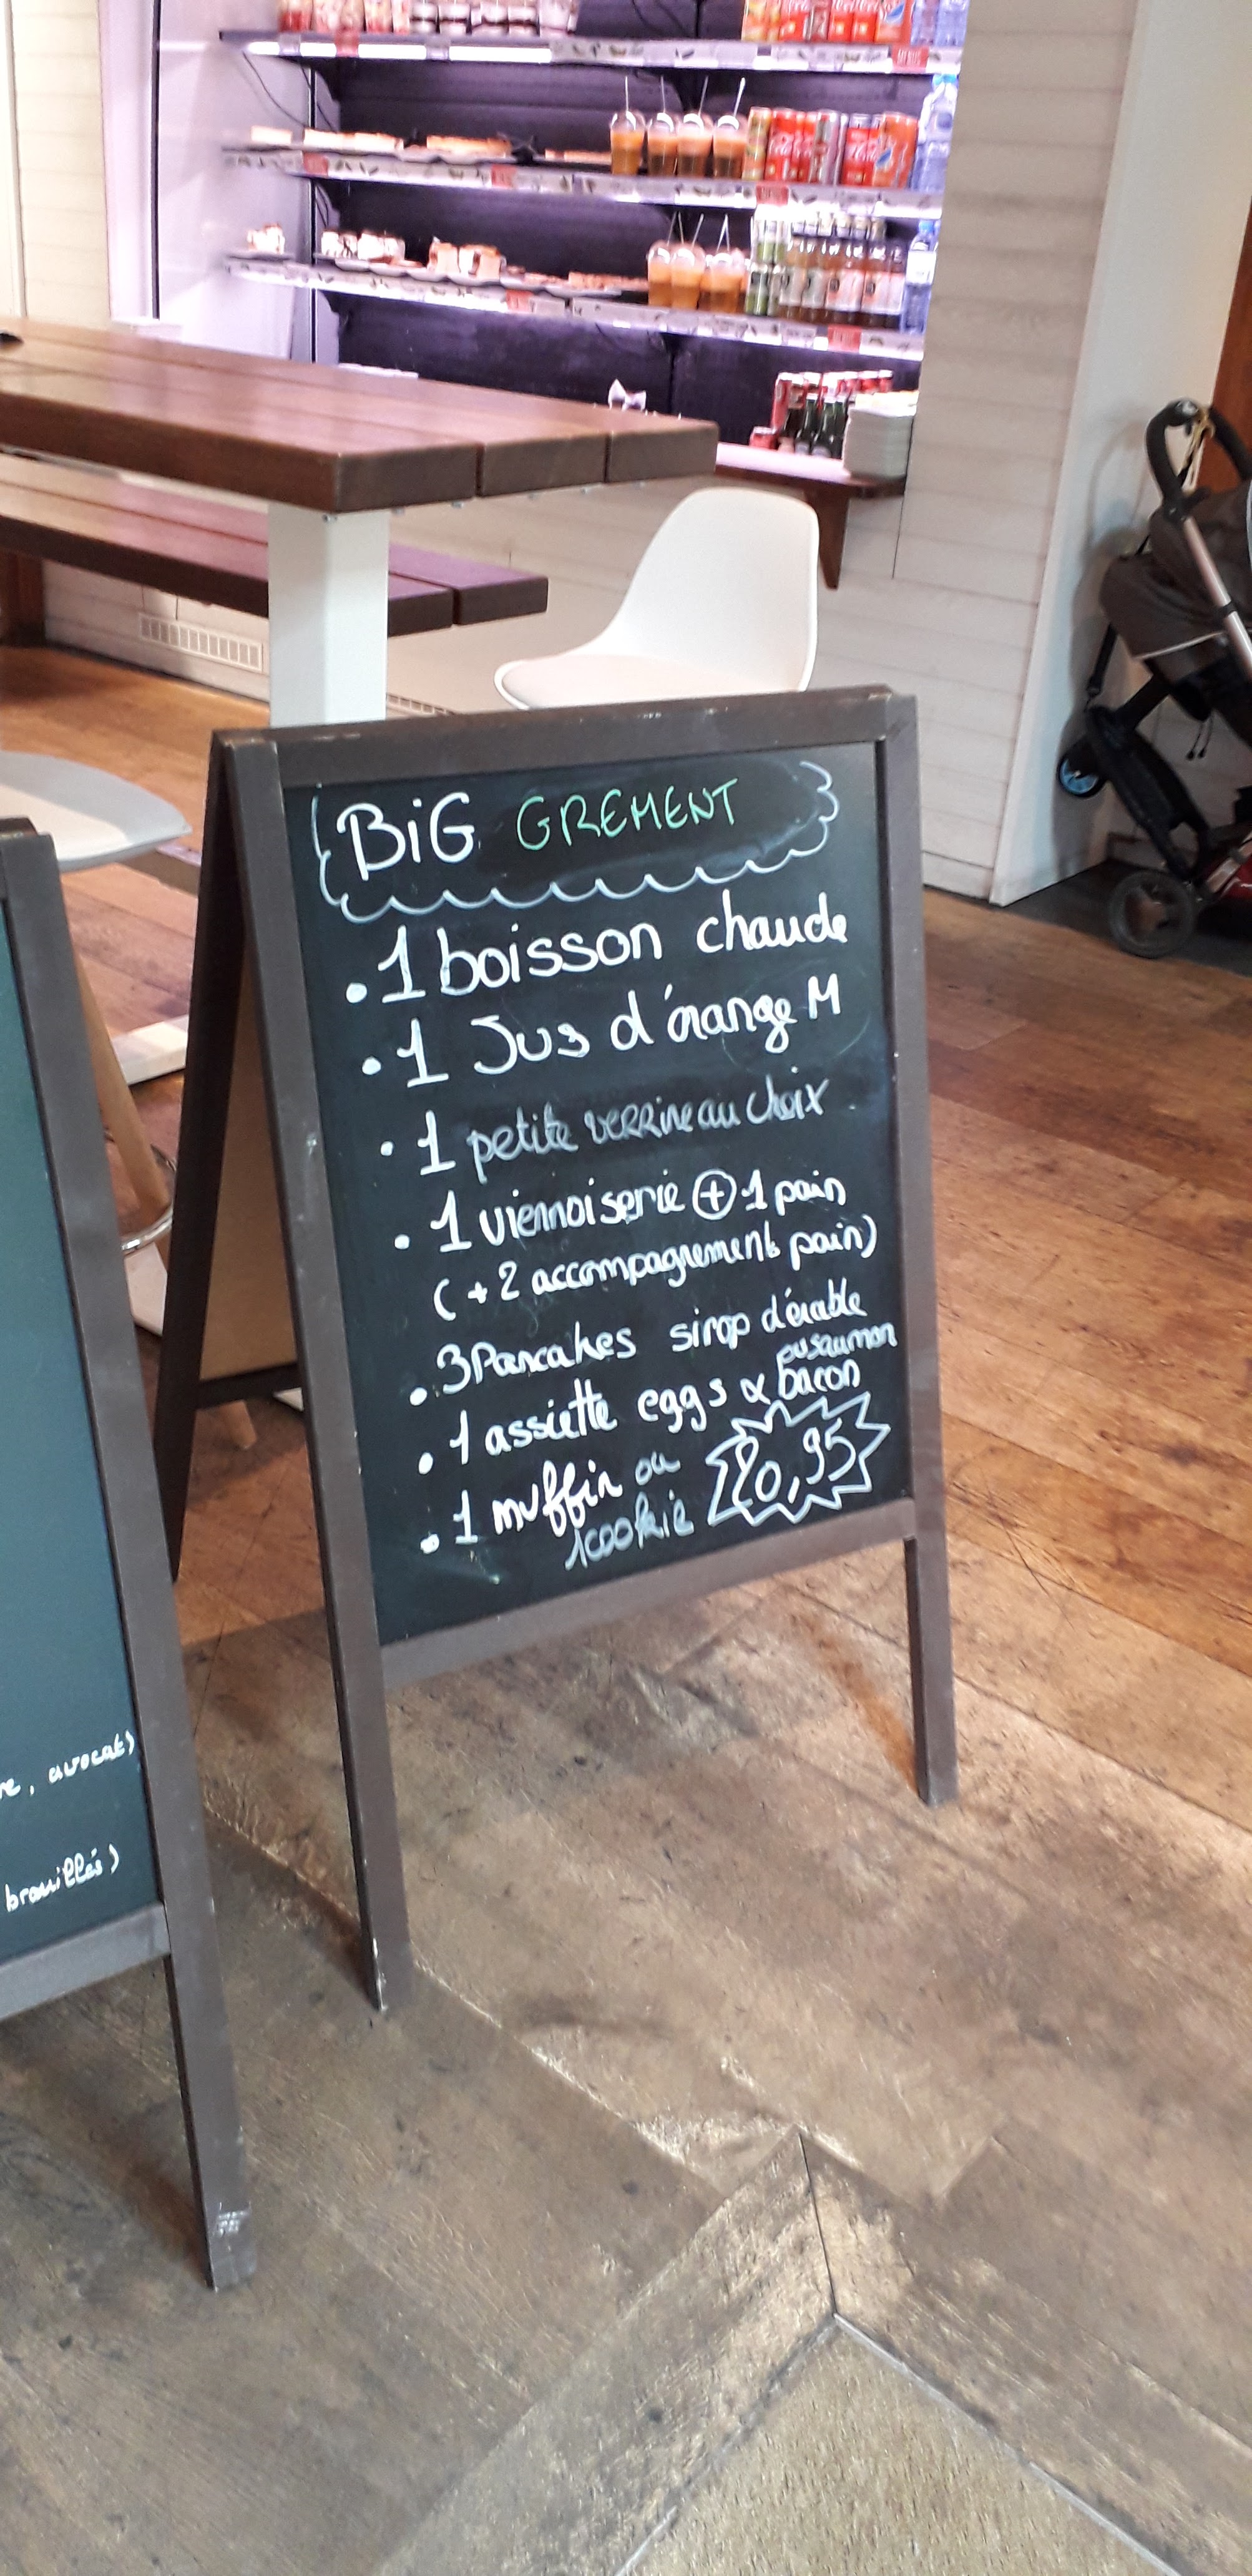 BiG GREMENT
• 1 boisson chaude
• 1 Jus d'orange M
• 1 petite verrine au choix
• 1 viennoiserie + 1 pain
( + 2 accompagnements pain)
• 3 Pancakes sirop d'érable
ou saumon
• 1 assiette eggs & bacon
• 1 muffin ou
1 cookie
20,95
, avocat)
brouillés)